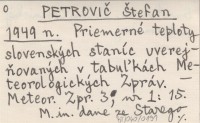 0
PETROVIČ Štefan
1949 n. Priemerné teploty
slovenských staníc uverej-
ňovaných v tabuľkách Me-
teorologických Zpráv.
Meteor. Zpr. 3, n 1: 15.
M. in. dane ze Starego